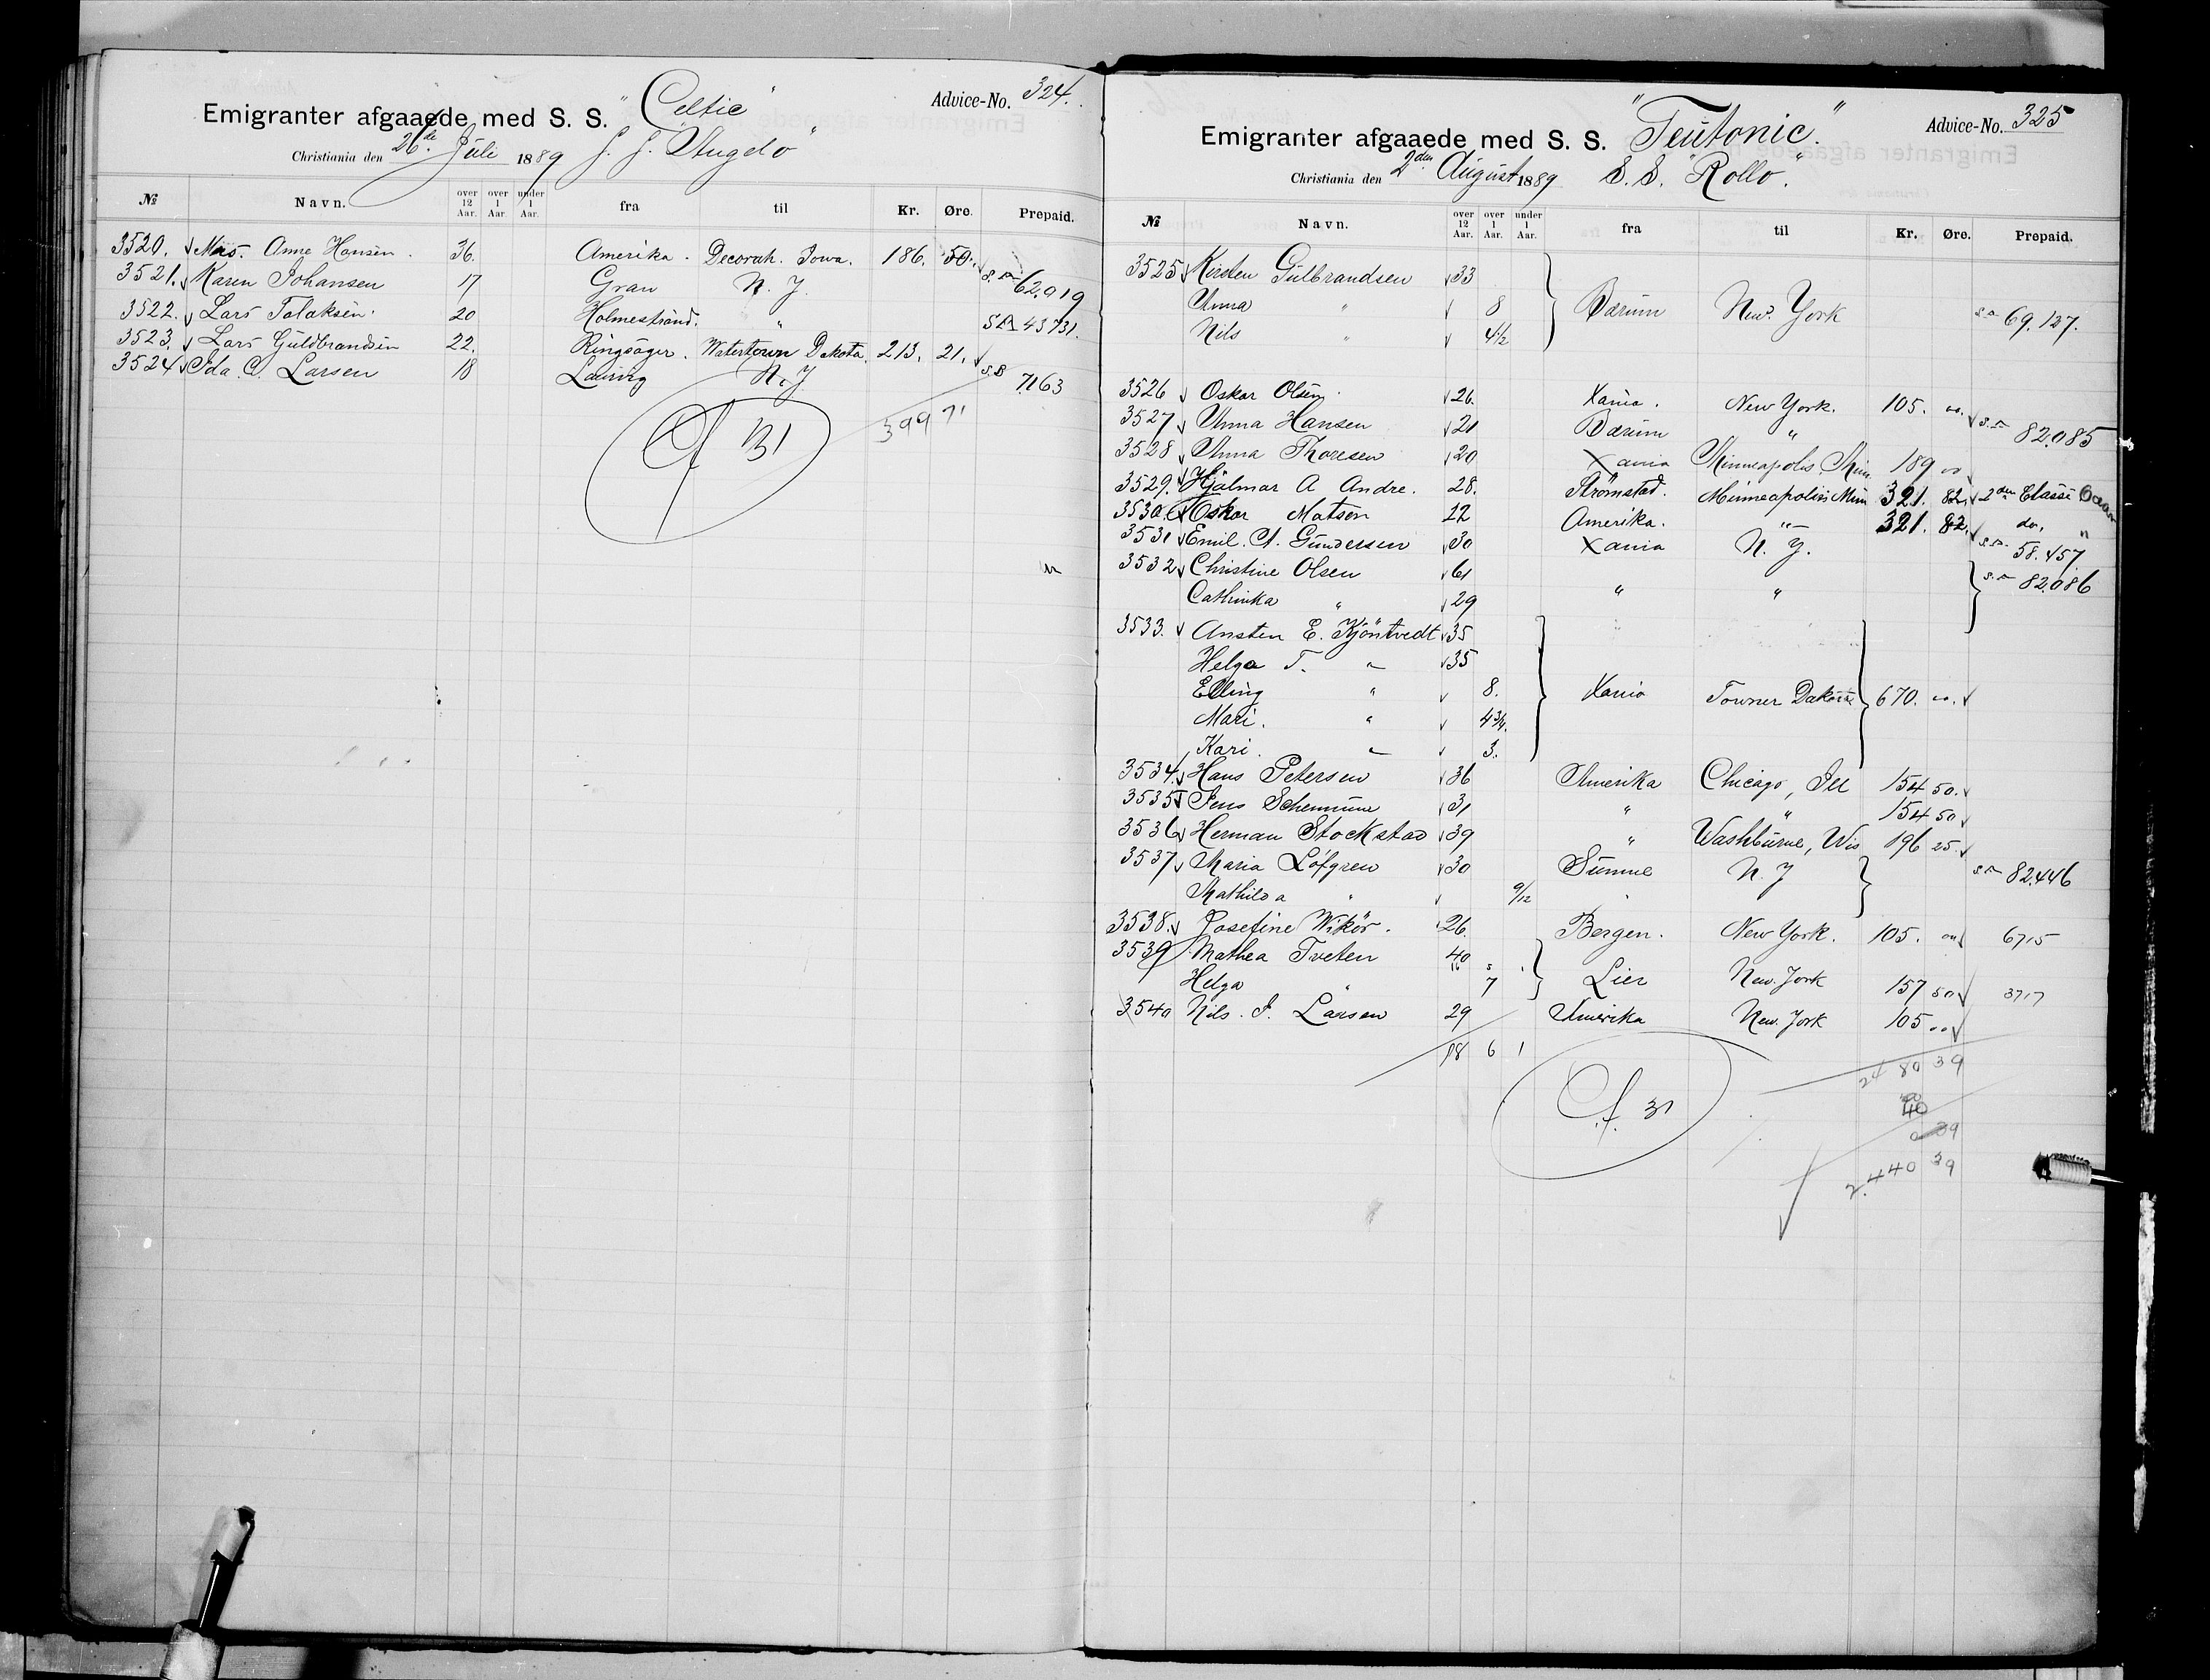 Emigranter afgaaede med S. S. "Celtic" Advice-No. 324.
Christiania den 26de Juli 1889 S. S. "Angelo"
№ Navn. over 12 Aar. over 1 Aar. under 1 Aar. fra til Kr. Øre. Prepaid.
3520. Mrs. Anne Hansen. 36. Amerika. Decorah. Iowa. 186. 50.
3521. Karen Johansen 17 Gran N. Y. 62.919
3522. Lars Talaksen 20 Holmestrand. " 43731.
3523. Lars Guldbrandsen 22. Ringsager. Watertown Dakota. 213. 21.
3524 Ida. C. Larsen 18 N. Y S.B 7163
399 71
Cf 131
Emigranter afgaaede med S. S. "Teutonic". Advice-No. 325
Christiania den 2den August 1889 S. S. "Rollo".
№ Navn. over 12 Aar. over 1 Aar. under 1 Aar. fra til Kr. Øre. Prepaid.
3525 Kirsten Gulbrandsen 33
Anna " 8 Bærum New. York 69.127.
Nils " 4½
3526 Oskar Olsen. 26. Xania. New York. 105. oo.
3527 Anna Hansen 21 Bærum " 82.085
3528 Anna Thoresen 20 Xania Minneapolis, Min 189 oo
3529. Hjalmar A Andre. 28. Strömstad. Minneapolis Min 321. 82. 2den Classe
3530. Oskar Matson 22 Amerika. " 321. 82. do. "
3531 Emil. A. Gundersen 30 Xania N. Y. 58.457
3532 Christine Olsen 61 82086
Cathinka " 29 " "
3533. Ansten E. Kjöntvedt 35
Helga T. " 35
Elling " 8. Xania Towner Dakota 670. oo.
Mari. " 4¾.
Kari. " 3.
3534. Hans Petersen 36 Amerika Chicago, Ill 154 50.
3535 Jens 31 " " 154 50
3536 Herman Stockstad 39 " Washburne, Wis 196 25.
3537 Maria Löfgren 30 Sunne N. Y 82.446
Mathilda " 9/12
3538. Josefine Wikör. 26. Bergen. New York. 105. oo 6715
3539 Mathea Tveten 40
Helga " 7 Lier New. York 157 50 3717
3540 Nils. J. Larsen 29 Amerika New. York 105 oo
18 6 1
2480 39
40
Cf. 31
2.440 39